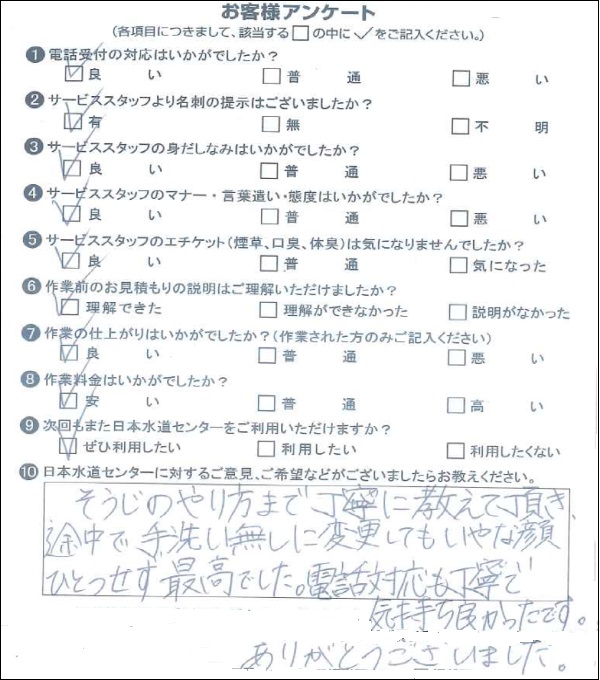 お客様アンケート
(各項目につきまして、該当する□の中に✓をご記入ください。)
❶ 電話受付の対応はいかがでしたか?
☑ 良い □ 普通 □ 悪い
❷ サービススタッフより名刺の提示はございましたか?
☑ 有 □ 無 □ 不明
❸ サービススタッフの身だしなみはいかがでしたか?
☑ 良い □ 普通 □ 悪い
❹ サービススタッフのマナー・言葉遣い・態度はいかがでしたか?
☑ 良い □ 普通 □ 悪い
❺ サービススタッフのエチケット(煙草、口臭、体臭)は気になりませんでしたか?
☑ 良い □ 普通 □ 気になった
❻ 作業前のお見積もりの説明はご理解いただけましたか?
☑ 理解できた □ 理解ができなかった □ 説明がなかった
❼ 作業の仕上がりはいかがでしたか?(作業された方のみご記入ください)
☑ 良い □ 普通 □ 悪い
❽ 作業料金はいかがでしたか?
☑ 安い □ 普通 □ 高い
❾ 次回もまた日本水道センターをご利用いただけますか?
☑ ぜひ利用したい □ 利用したい □ 利用したくない
❿ 日本水道センターに対するご意見、ご希望などがございましたらお教えください。
そうじのやり方まで丁寧に教えて頂き、
途中で手洗い無しに変更してもいやな顔
ひとつせず最高でした。電話対応も丁寧で
気持ち良かったです。
ありがとうございました。